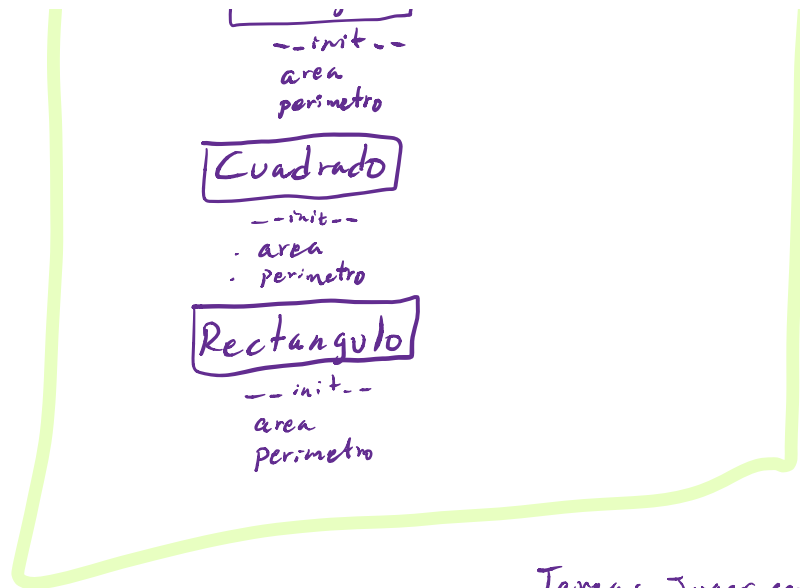 --init--
area
perimetro
Cuadrado
--init--
. area
. perimetro
Rectangulo
--init--
area
perimetro